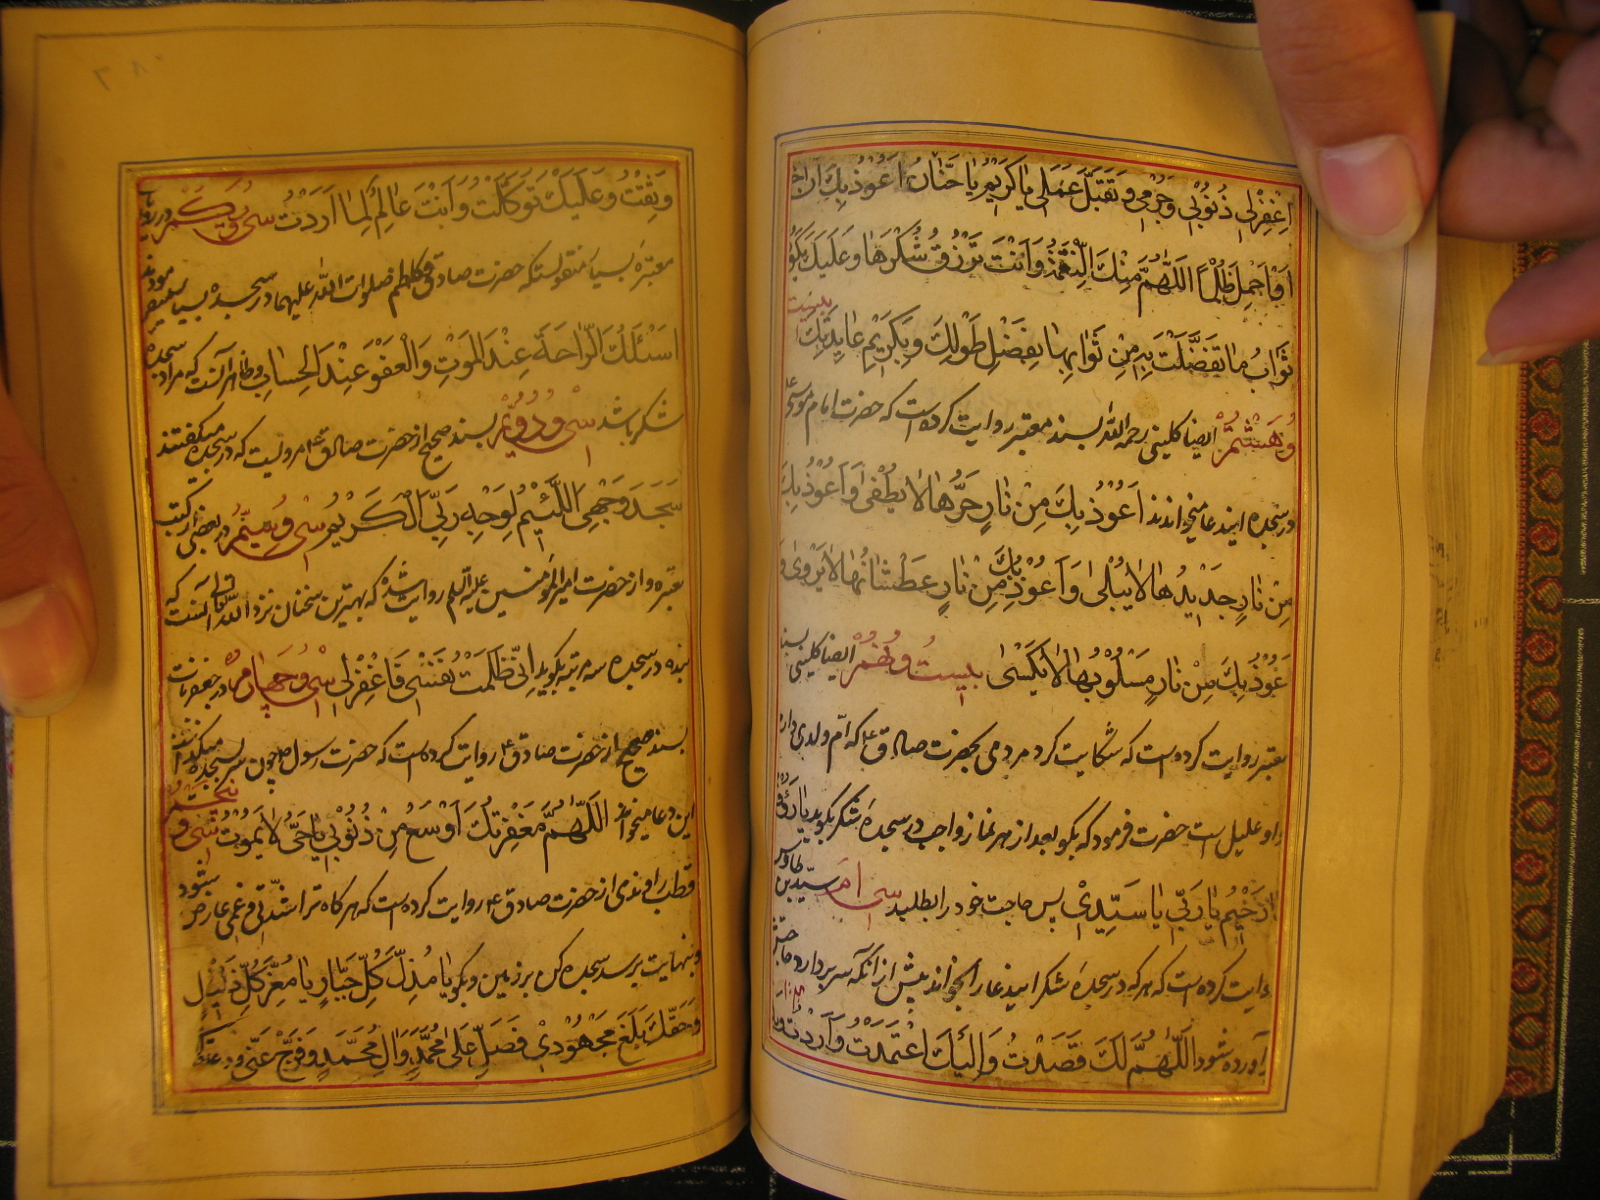 اغْفِرْلی ذُنُوبی وَجُرْمی وَتَقَبَّلْ عَمَلی یا کَریمُ یا حَنّانُ اَعُوذُ بِکَ اَنْ
اَوْ اَحْمِلَ ظُلْمًا اَللّهُمَّ مِنْکَ النِّعْمَةُ وَاَنْتَ تَرْزُقُ شُکْرَها وَعَلَیْکَ یَکُونُ
ثَوابُ ما تَفَضَّلْتَ بِهِ مِنْ ثَوابِها بِفَضْلِ طَوْلِکَ وَبِکَریمِ عایِدَتِکَ بیست
وهشتم ایضا کلینی رحمه الله بسند معتبر روایت کرده است که حضرت امام موسی
در سجده این دعا میخواندند اَعُوذُ بِکَ مِنْ نارٍ حَرُّها لا یُطْفی وَاَعُوذُ بِکَ
مِنْ نارٍ جَدیدُها لا یُبْلی وَاَعُوذُ بِکَ مِنْ نارٍ عَطْشانُها لا یَرْوی وَ
عُوذُ بِکَ مِنْ نارٍ مَسْلُوبُها لا یُکْسی بیست ونهم ایضا کلینی بسند
معتبر روایت کرده است که شکایت کرد مردمی بحضرت صادق ع که ام ولدی دارد
و او علیل است حضرت فرمود که بکو بعد از هر نماز واجب در سجده شکر بکوید یا رؤف
یا رَحیمُ یا رَبِّ یا سَیِّدی پس حاجت خود را بطلبد سی ام سید بن طاوس
روایت کرده است که هر که در سجده شکر این دعا را بخواند پیش از آنکه سر بردارد حاجتش
آورده شود اَللّهُمَّ لَکَ قَصَدْتُ وَاِلَیْکَ اعْتَمَدْتُ وَاَرَدْتُ وَبِکَ
وَثِقْتُ وَعَلَیْکَ تَوَکَّلْتُ وَاَنْتَ عالِمٌ لِما اَرَدْتُ سی ویکم در روایات
معتبره بسیار منقولستکه حضرت صادق و کاظم صلوات الله علیهما در سجده بسیار میفرمودند
اَسْئَلُکَ الرّاحَةَ عِنْدَ الْمَوْتِ وَالْعَفْوَ عِنْدَ الْحِسابِ وظاهر آنست که مراد سجده
شکر باشد سی ودویم بسند صحیح از حضرت صادق ع مرویست که در سجده میکفتند
سَجَدَ وَجْهِیَ اللَّئیمُ لِوَجْهِ رَبِّیَ الْکَریمِ سی وسیم در بعضی از کتب
معتبره و از حضرت امیر المؤمنین علیه السلم روایت شده که بهترین سخنان نزد الله تعالی آنست که
بنده در سجده سه مرتبه بکوید اِنّی ظَلَمْتُ نَفْسی فَاغْفِرْلی سی وچهارم در جعفریات
بسند صحیح از حضرت صادق ع روایت کرده است که حضرت رسول ص چون سر بسجده میکذاشتند
این دعا میخواندند اَللّهُمَّ مَغْفِرَتُکَ اَوْسَعُ مِنْ ذُنُوبی یا حَیُّ لا یَمُوتُ سی وپنجم
قطب راوندی از حضرت صادق ع روایت کرده است که هر کاه ترا شدتی و غمی عارض شود
و بنهایت برسد سجده کن بر زمین و بکو یا مُذِلَّ کُلِّ جَبّارٍ یا مُعِزَّ کُلِّ ذَلیلٍ
وَحَقِّکَ بَلَغَ مَجْهُودی فَصَلِّ عَلی مُحَمَّدٍ وَآلِ مُحَمَّدٍ وَفَرِّجْ عَنّی